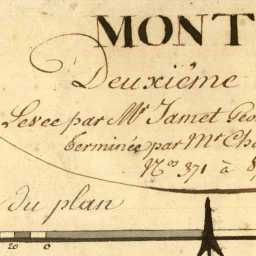 MONT
Deuxième
Levee par Mr Jamet Geo
terminée par Mr Cha
Nos 371 à 8
du plan
20 0